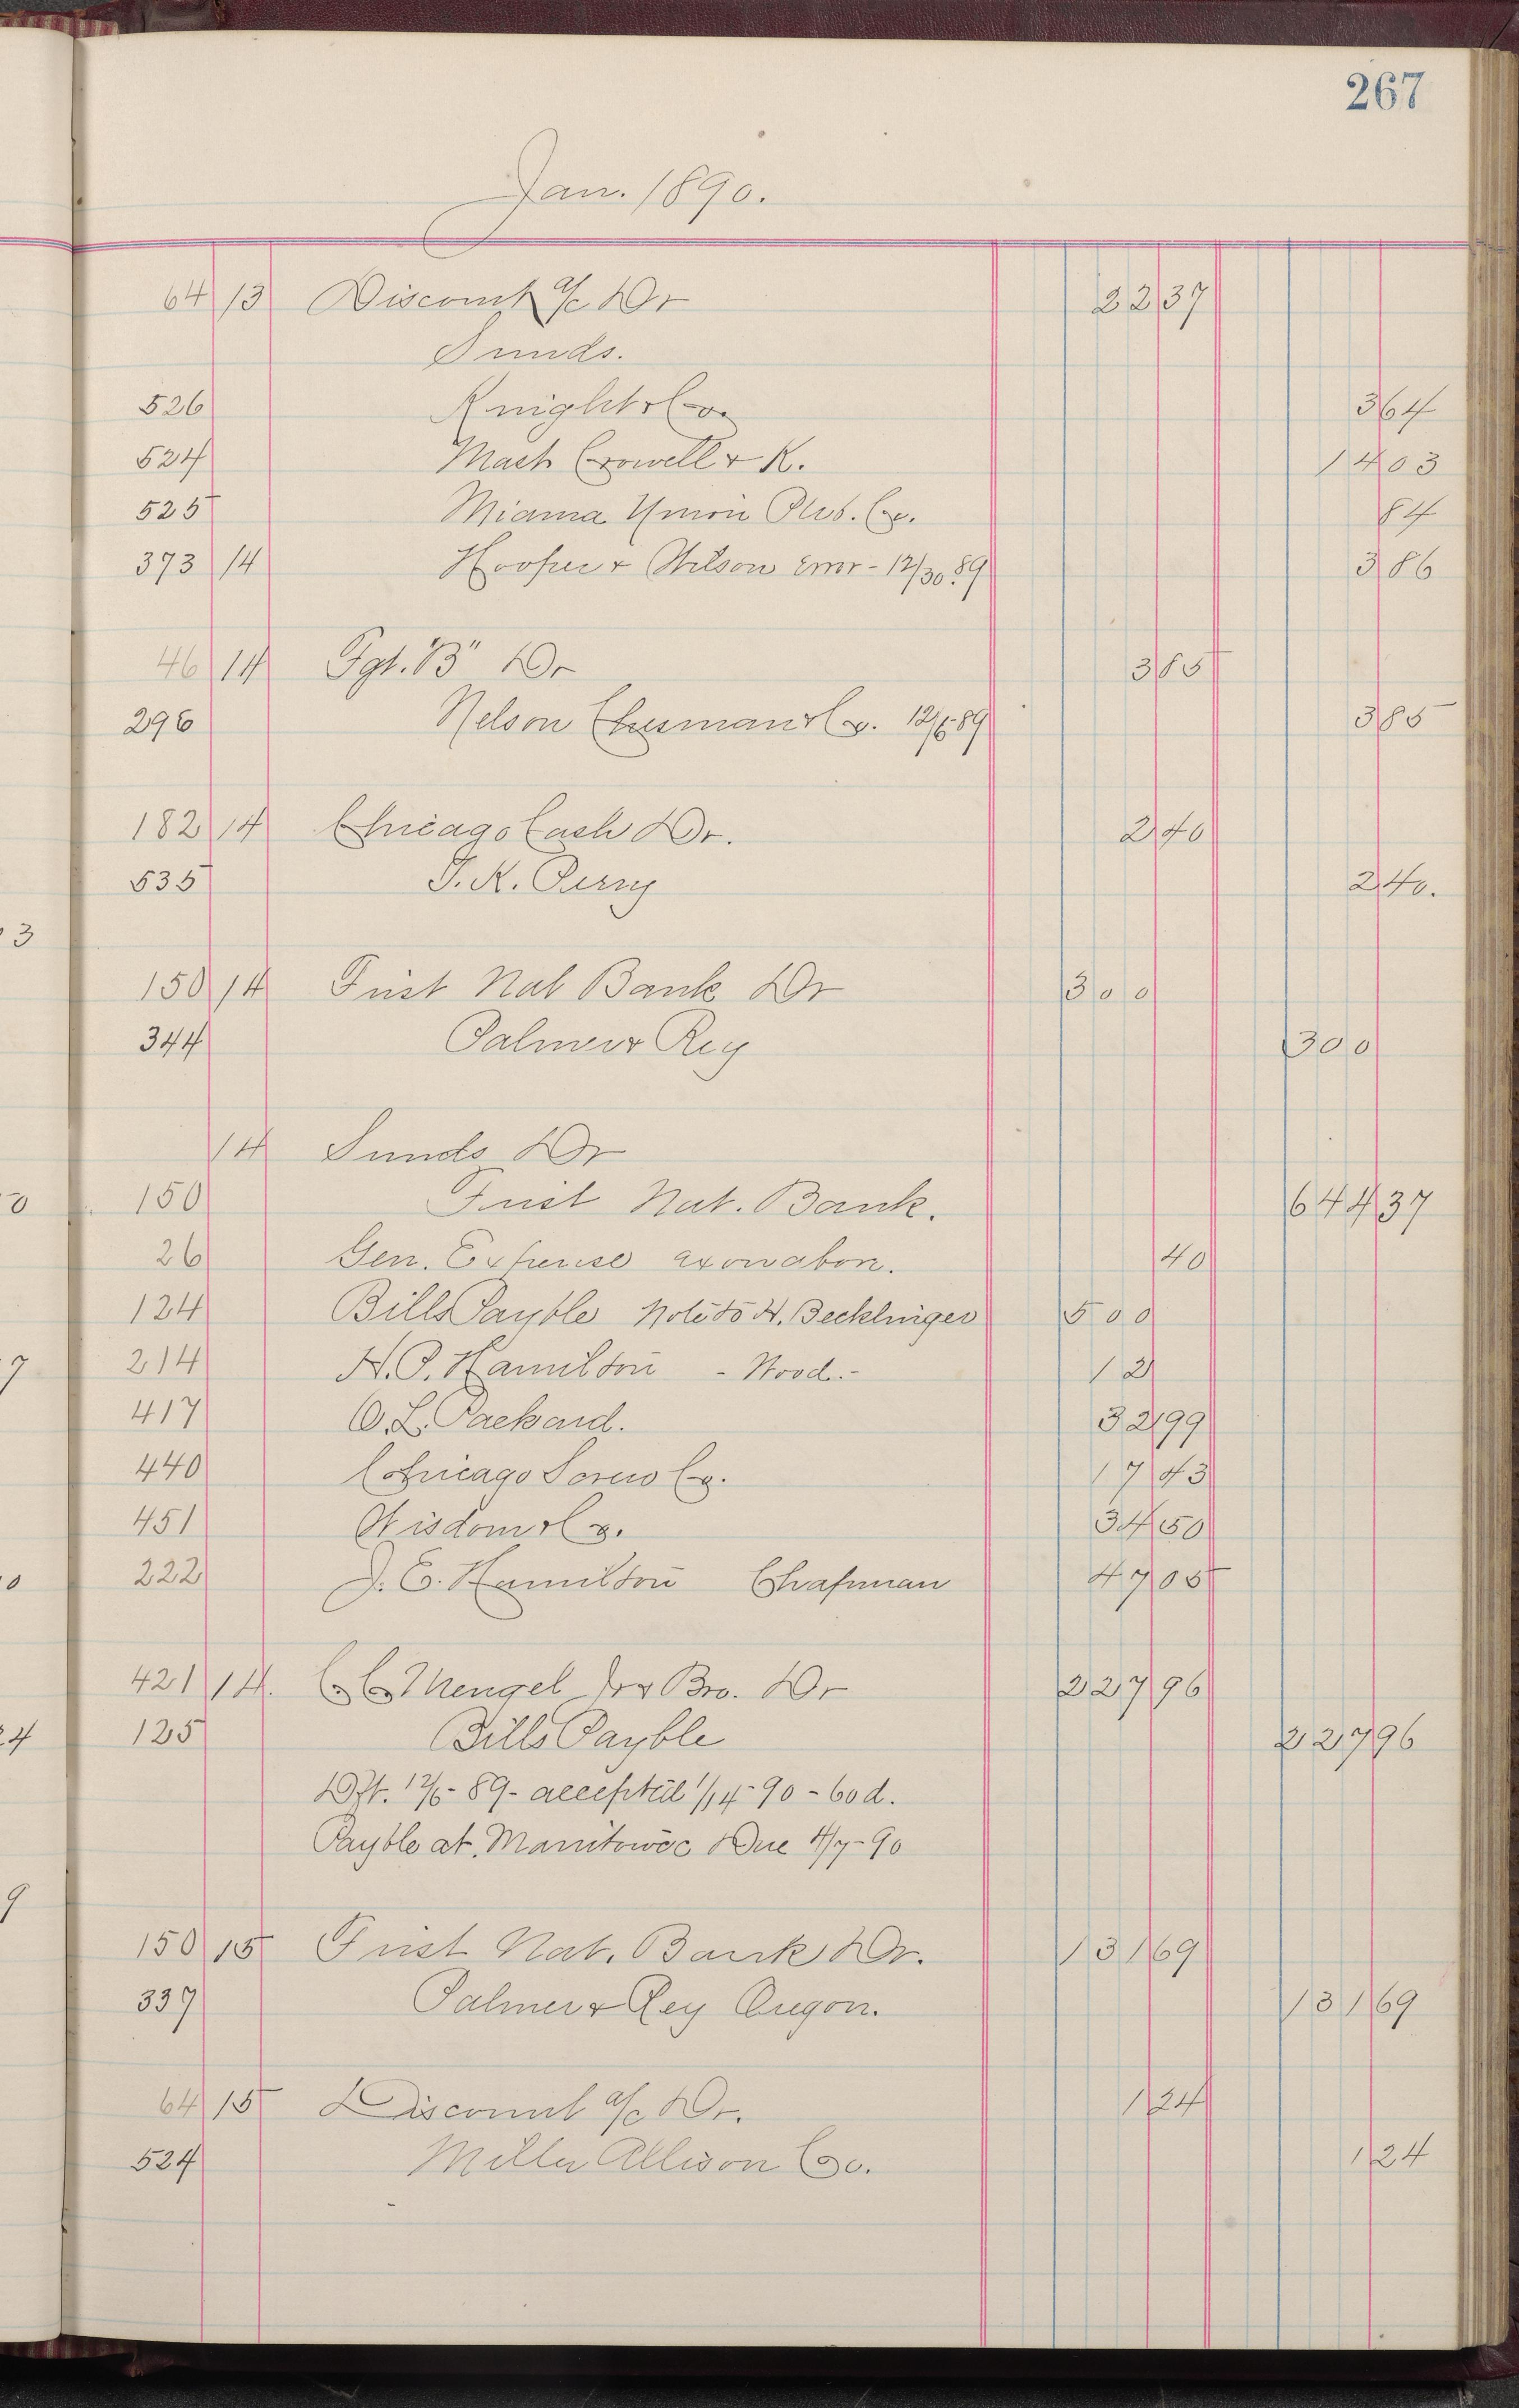 267
Jan. 1890.
64 13 Discount a/c Dr 22 37
Sunds.
526 Knight & Co. 3 64
524 Mast Crowell & K. 14 03
525 Miama Union Pub. Co. 84
373 14 Hooper & Wilson Error - 12/30 89 3 86
46 14 Fgt. "B" Dr 3 85
296 Nelson Chesman & Co. 12/6 89 3 85
182 14 Chicago Cash Dr. 2 40
535 T. K. Perry 2 40.
3
150 14 First Nat Bank Dr 300
344 Palmer & Rey 300
14 Sunds Dr
0 150 First Nat. Bank. 644 37
26 Gen. Expense 40
124 Bills Payble Note to H. Becklinger 500
7 214 H. P. Hamilton - Wood. - 12
417 O. L. Packard. 32 99
440 Chicago Screw Co. 17 43
451 Wisdom & Co. 34 50
0 222 J. E. Hamilton Chapman 47 05
421 14. C. C. Mengel Jr & Bro. Dr 227 96
4 125 Bills Payble 227 96
Dft. 12/6 - 89 - accepted 1/14 - 90 - 60 d.
Payble at. Manitowoc Due 4/7 - 90
9
150 15 First Nat. Bank Dr. 131 69
337 Palmer & Rey Oregon. 131 69
64 15 Discount a/c Dr. 1 24
524 Miller Allison Co. 1 24